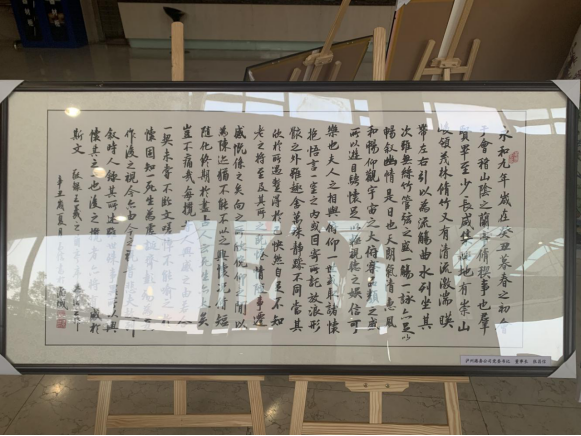 永和九年歲在癸丑暮春之初會
于會稽山陰之蘭亭脩稧事也羣
賢畢至少長咸集此地有崇山
峻領茂林脩竹又有清流激湍暎
帶左右引以為流觴曲水列坐其
次雖無絲竹管弦之盛一觴一詠亦足以
暢敘幽情是日也天朗氣清惠風
和暢仰觀宇宙之大俯察品類之盛
所以遊目騁懷足以極視聽之娛信可
樂也夫人之相與俯仰一世或取諸懷
抱悟言一室之內或因寄所託放浪形
骸之外雖趣舍萬殊靜躁不同當其
欣於所遇暫得於己快然自足不知
老之將至及其所之既倦情隨事遷
感慨係之矣向之所欣俛仰之間以
為陳迹猶不能不以之興懷況脩短
隨化終期於盡古人云死生亦大矣
豈不痛哉每攬昔人興感之由若
一契未嘗不臨文嗟悼不能喻之於
懷固知一死生為虛誕齊彭殤為
作後之視今亦由今之視昔悲夫
敘時人錄其所述雖世殊事異所以興
懷其致一也後之攬者亦將有感於
斯文 王羲之
辛丑歲夏月